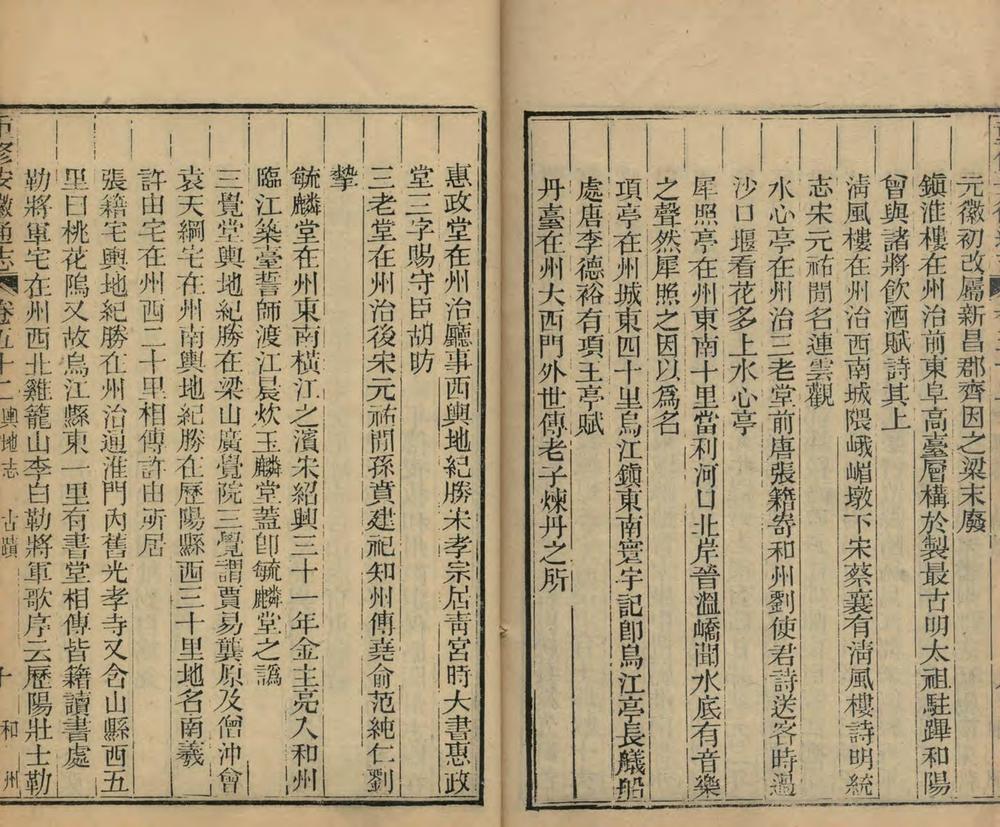 元徽初改屬新昌郡齊因之梁末廢
鎭淮樓在州治前東阜高臺層構於製最古明太祖駐蹕和陽
曾與諸將飮酒賦詩其上
淸風樓在州治西南城隈峨嵋墩下宋蔡襄有淸風樓詩明統
志宋元祐閒名連雲觀
水心亭在州治三老堂前唐張籍寄和州劉使君詩送客時過
沙口堰看花多上水心亭
犀照亭在州東南十里當利河口北岸晉溫嶠聞水底有音樂
之聲然犀照之因以爲名
項亭在州城東四十里烏江鎭東南寰宇記卽烏江亭長艤船
處唐李德裕有項王亭賦
丹臺在州大西門外世傳老子煉丹之所
惠政堂在州治廳事西輿地紀勝宋孝宗居靑宮時大書惠政
堂三字賜守臣胡昉
三老堂在州治後宋元祐閒孫賁建祀知州傅堯俞范純仁劉
摯
毓麟堂在州東南橫江之濱宋紹興三十一年金主亮入和州
臨江築臺誓師渡江晨炊玉麟堂蓋卽毓麟堂之譌
三覺堂輿地紀勝在梁山廣覺院三覺謂賈易龔原及僧沖會
袁天綱宅在州南輿地紀勝在歷陽縣西三十里地名南羲
許由宅在州西二十里相傳許由所居
張籍宅輿地紀勝在州治通淮門內舊光孝寺又含山縣西五
里曰桃花隖又故烏江縣東一里有書堂相傳皆籍讀書處
勒將軍宅在州西北雞籠山李白勒將軍歌序云歷陽壯士勒
修安徽通志 卷五十二 輿地志 古蹟 十 和州